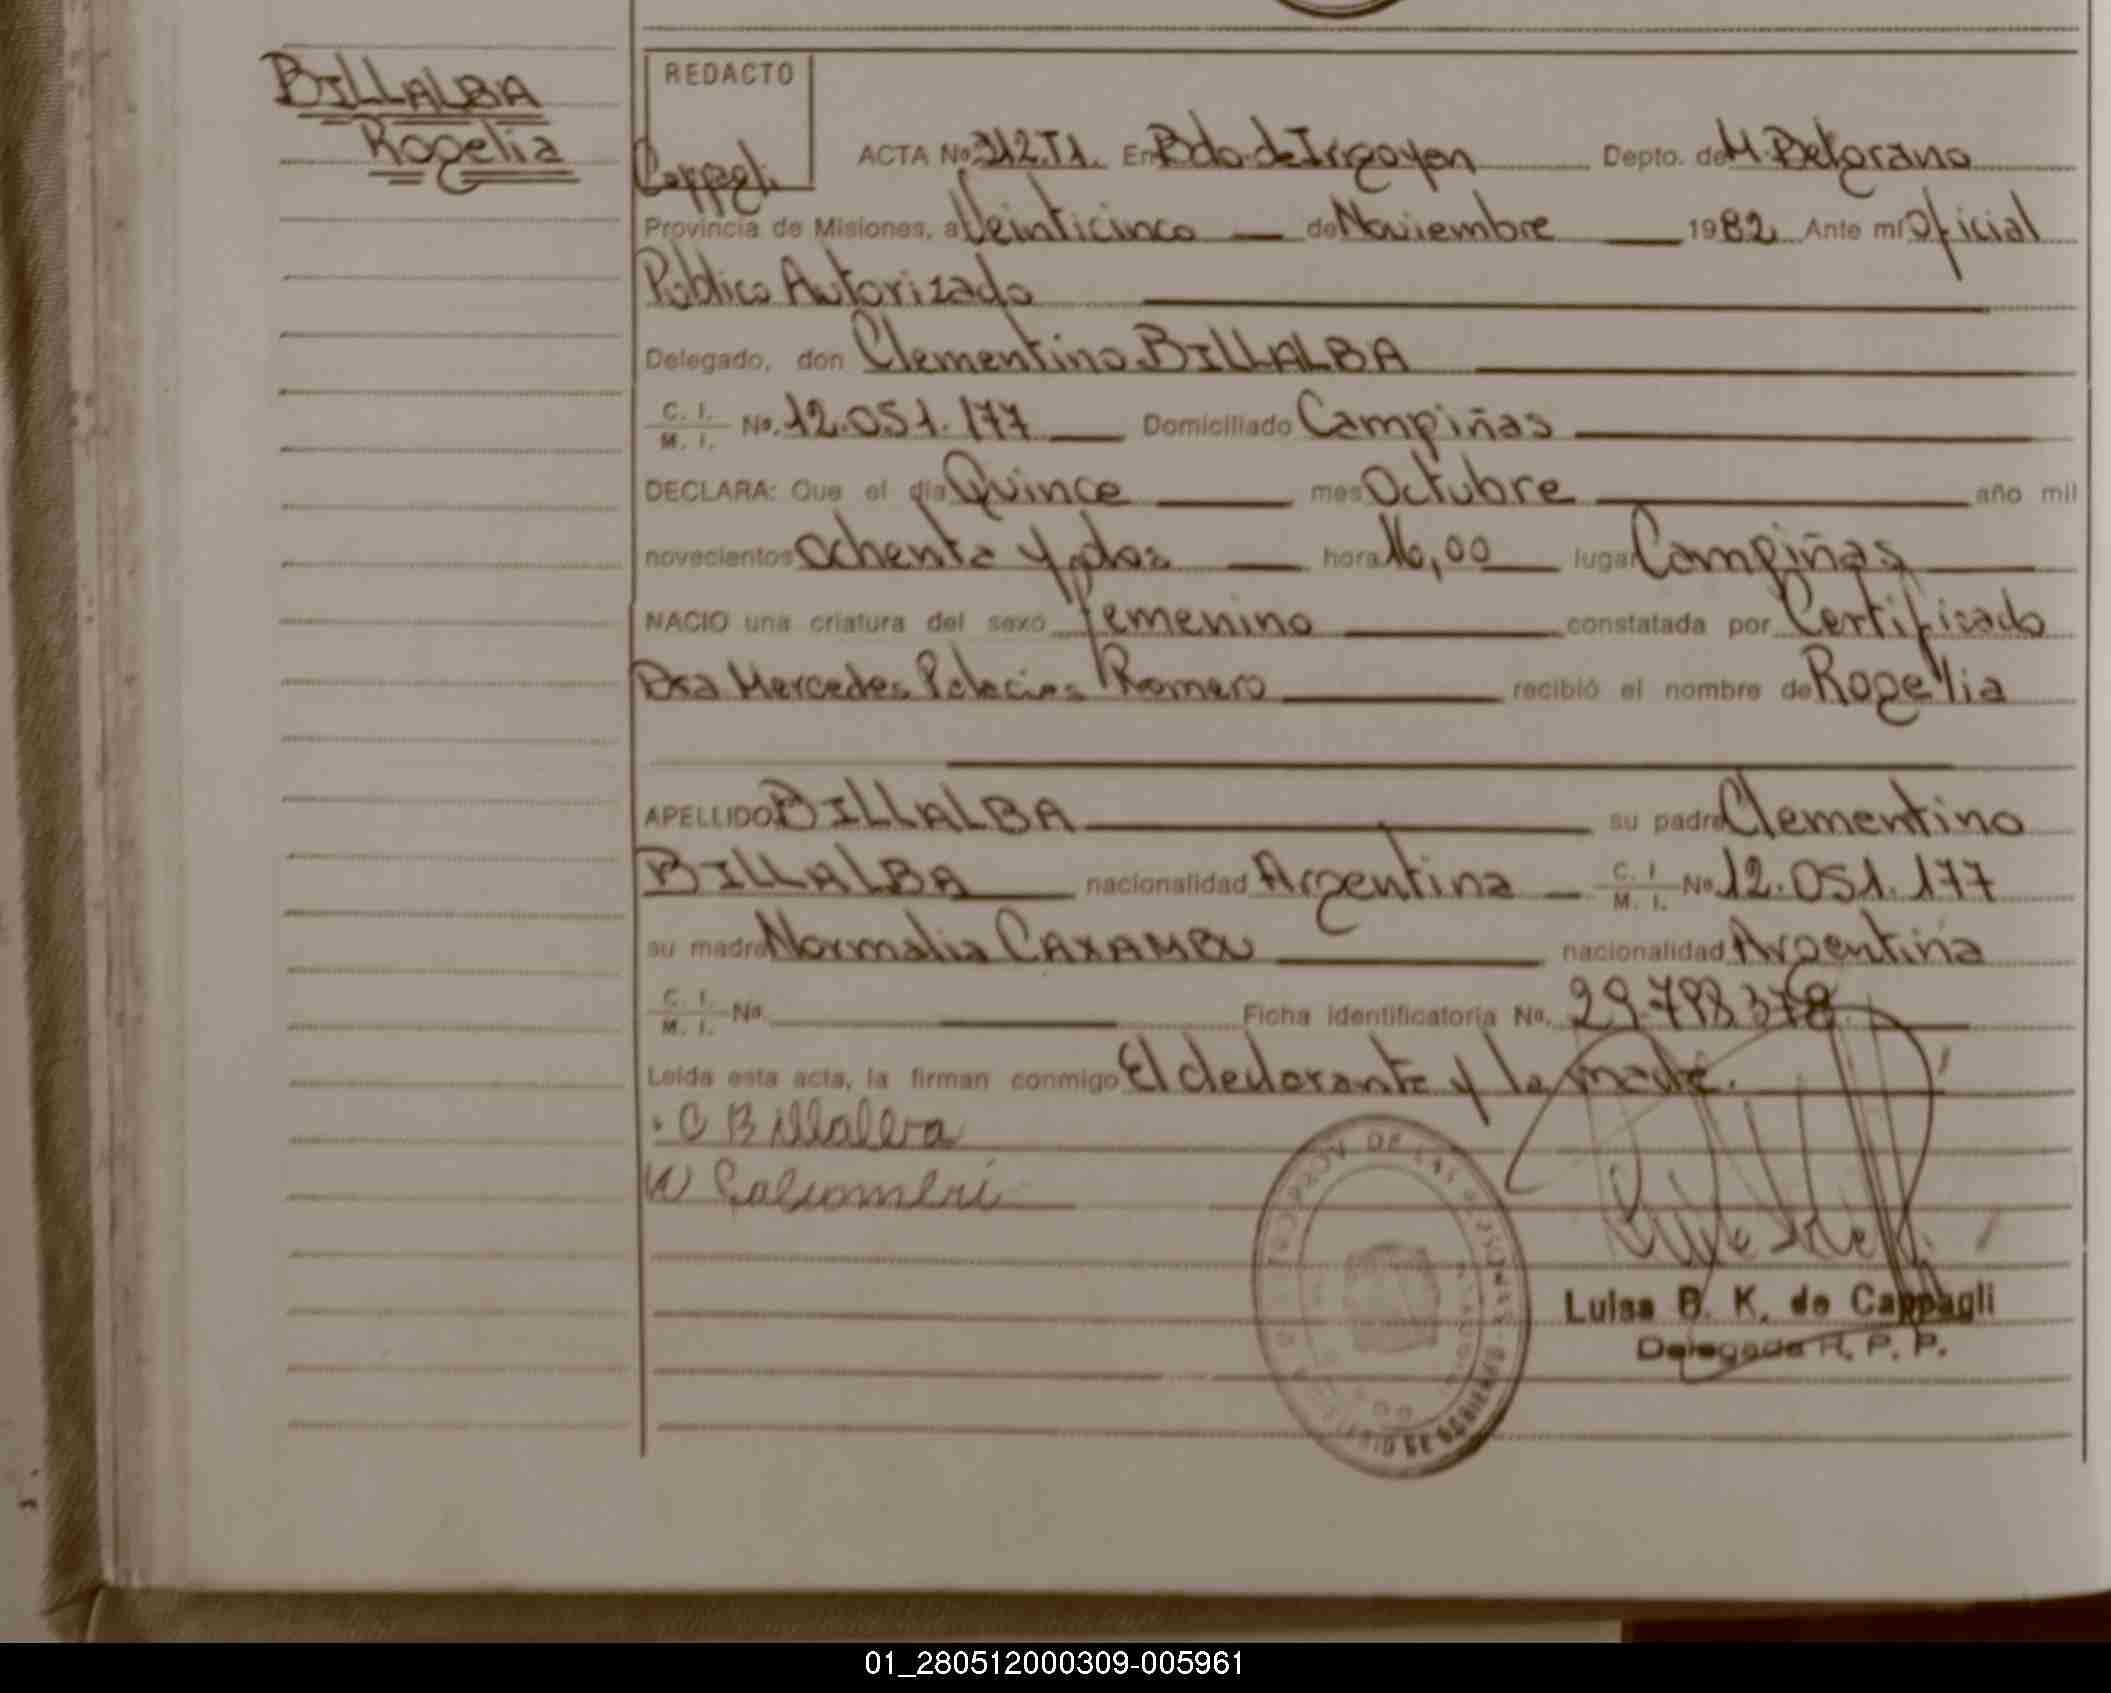 BILLALBA
Rogelia
REDACTO
Cappagli
ACTA No. 312.T1. En Bdo. de Irigoyen Depto. de M. Belgrano
Provincia de Misiones, a Veinticinco de Noviembre 1982 Ante mí Oficial
Público Autorizado
Delegado, don Clementino BILLALBA
C. I. M. I. No. 12.051.177 Domiciliado Campiñas
DECLARA: Que el día Quince mes Octubre año mil
novecientos ochenta y dos hora 16,00 lugar Campiñas
NACIO una criatura del sexo femenino constatada por Certificado
Dra Mercedes Palacios Romero recibió el nombre de Rogelia
APELLIDO BILLALBA su padre Clementino
BILLALBA nacionalidad Argentina C. I. M. I. No. 12.051.177
su madre Normalia CAXAMBU nacionalidad Argentina
C. I. M. I. No. Ficha identificatoria No. 29.798.378
Leída esta acta, la firman conmigo El declarante y la madre.
C Billalba
PROV DE LAS
MINISTERIO DE GOBIERNO
Luisa B. K. de Cappagli
Delegada R. P. P.
01_280512000309-005961